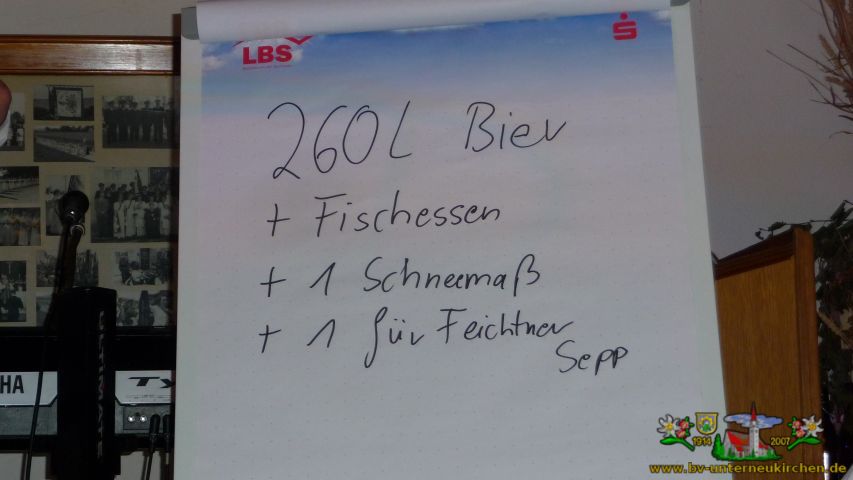 LBS
S
260L Bier
+ Fischessen
+ 1 Schneemaß
+ 1 für Feichtner
Sepp
HA
Ty
1914 2007
www.bv-unterneukirchen.de